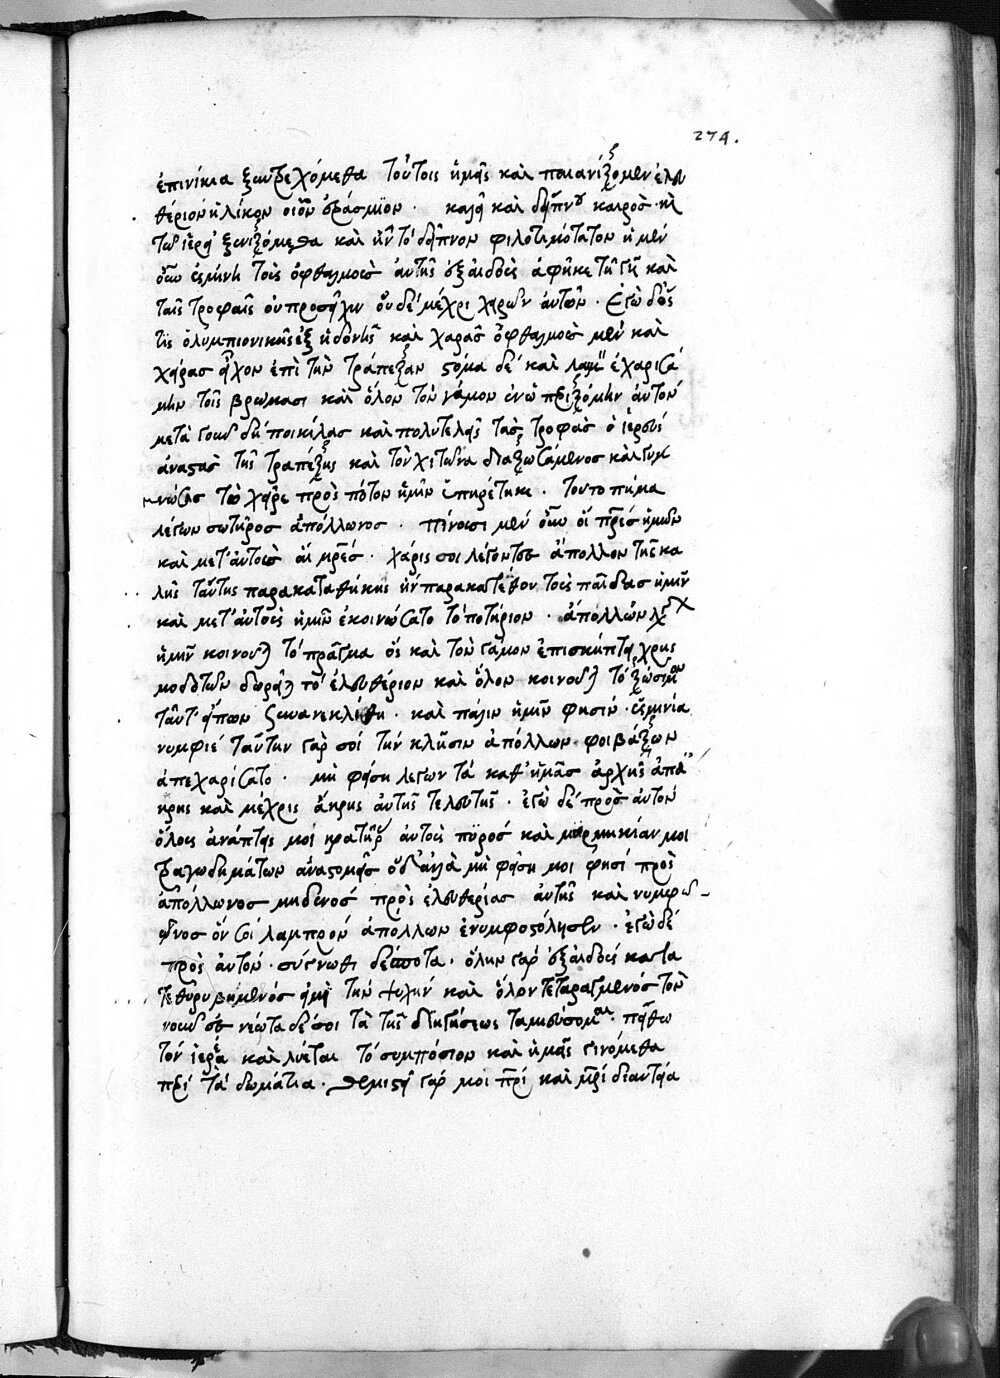 274.
ἐπινίκια ξυντρεχόμεθα τούτοις ἡμεῖς καὶ παιανίζομεν ἐλευ
θέριον ἡλίκον οἷον ἐράσμιον · καλεῖ καὶ δείπνου καιρὸς κἀ
τῶ ἱερεῖ ξενιζόμεθα καὶ ἦν τὸ δεῖπνον φιλοτιμότατον ἡ μὲν
οὖν ὑσμίνη τοὺς ὀφθαλμοὺς αὐτῆς ἐξ αἰδοῦς ἀφῆκε τῇ γῇ καὶ
ταῖς τροφαῖς οὐ προσῆγεν οὐδὲ μέχρι χειρῶν αὐτῶν · Ἐγὼ δ' ὥς
τις ὀλυμπιονίκης ἐξ ἡδονῆς καὶ χαρᾶς ὀφθαλμοὺς μὲν καὶ
χεῖρας εἶχον ἐπὶ τὴν τράπεζαν στόμα δὲ καὶ λαιμὸν ἐχαριζό
μην τοῖς βρώμασι καὶ ὅλον τὸν γάμον ἐνωπτριζόμην αὐτόν
μετὰ γοῦν δὴ ποικίλας καὶ πολυτελεῖς τὰς τροφὰς ὁ ἱερεύς
ἀναστὰς τῆς τραπέζης καὶ τὸν χιτῶνα διαζωσάμενος καὶ γυμ
νώσας τὼ χεῖρε πρὸς πότον ἡμῖν ὑπηρέτηκε · Τοῦτο πόμα
λέγων σωτῆρος ἀπόλλωνος · πίνουσι μὲν οὖν οἱ πρες ἡμῶν
καὶ μετ' αὐτοὺς αἱ μρές · χάρις σοι λέγοντες ἄπολλον τῆς κα
λῆς ταύτης παρακαταθήκης ἣν παρακατέθου τοὺς παῖδας ἡμῖν
καὶ μετ' αὐτοὺς ἡμῖν ἐκοινώσατο τὸ ποτήριον · ἀπόλλων λέγων
ἡμῖν κοινοῖ τὸ πρᾶγμα ὃς καὶ τὸν γάμον ἐπισκήπτει χρησ
μοδοτῶν δωρεῖται τὸ ἐλευθέριον καὶ ὅλον κοινοῖ τὸ ζώσιμον
ταῦτ' εἰπὼν ξυνανεκλίθη · καὶ πάλιν ἡμῖν φησιν · ὑσμινία
νυμφίε ταύτην γάρ σοί τὴν κλῆσιν ἀπόλλων φοιβάζων
ἀπεχαρίσατο · μὴ φείσῃ λέγων τὰ καθ' ἡμᾶς ἀρχῆς ἀπ' ἄ
κρης καὶ μέχρις ἄκρης αὐτῆς τελευτῆς · ἐγὼ δὲ πρὸς αὐτόν
ὅλους ἀνάπτεις μοι κρατῆρας αὐτοὺς πυρός καὶ μυρμηκίαν μοι
τραγωδημάτων ἀναστομεῖς ὁ δ' ἀλλὰ μὴ φείσῃ μοι φησί πρὸς
ἀπόλλωνος μηδενός πρὸς ἐλευθερίας αὐτῆς καὶ νυμφῶ-
νος ὅν σοι λαμπρόν ἀπόλλων ἐνυμφοστόλησεν · ἐγὼ δέ
πρὸς αὐτόν · σύγνωθι δέσποτα · ὅλην γὰρ ἐξ αἰδοῦς κατα
τεθορυβημένος εἰμὶ τὴν ψυχήν καὶ ὅλον τεταραγμένος τὸν
νοῦν ἐς νέωτα δέ σοι τὰ τῆς διηγήσεως ταμιεύσομαι · πείθω
τὸν ἱερέα καὶ λύεται τὸ συμπόσιον καὶ ἡμεῖς γινόμεθα
περὶ τὰ δωμάτια · Θεμιστεῖ γάρ μοι πρι καὶ μρι διαντεία